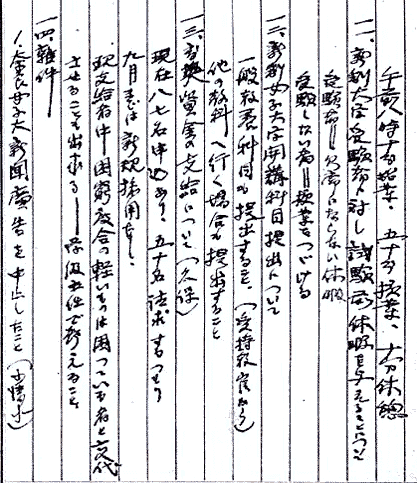 午前八時より始業、五十分授業、十分休憩
一一、新制大学受験者に対し試験前休暇を与えることについて
受験者―欠席にならない休暇
受験しない者―授業をつづける
一二、新制女子大学開講科目提出について
一般教養科目も提出すること、(受持教官から)
他の教科へ行く場合も提出すること
一三、育英資金の支給について(久保)
現在八七名申込あり、五十名請求するつもり
九月までは新規採用なし、
現支給者中困窮度合の軽いものは困っている者と交代
させることも出来る――学級主任で考えること
一四、雑件
1.奈良女子大新聞広告を中止したこと(